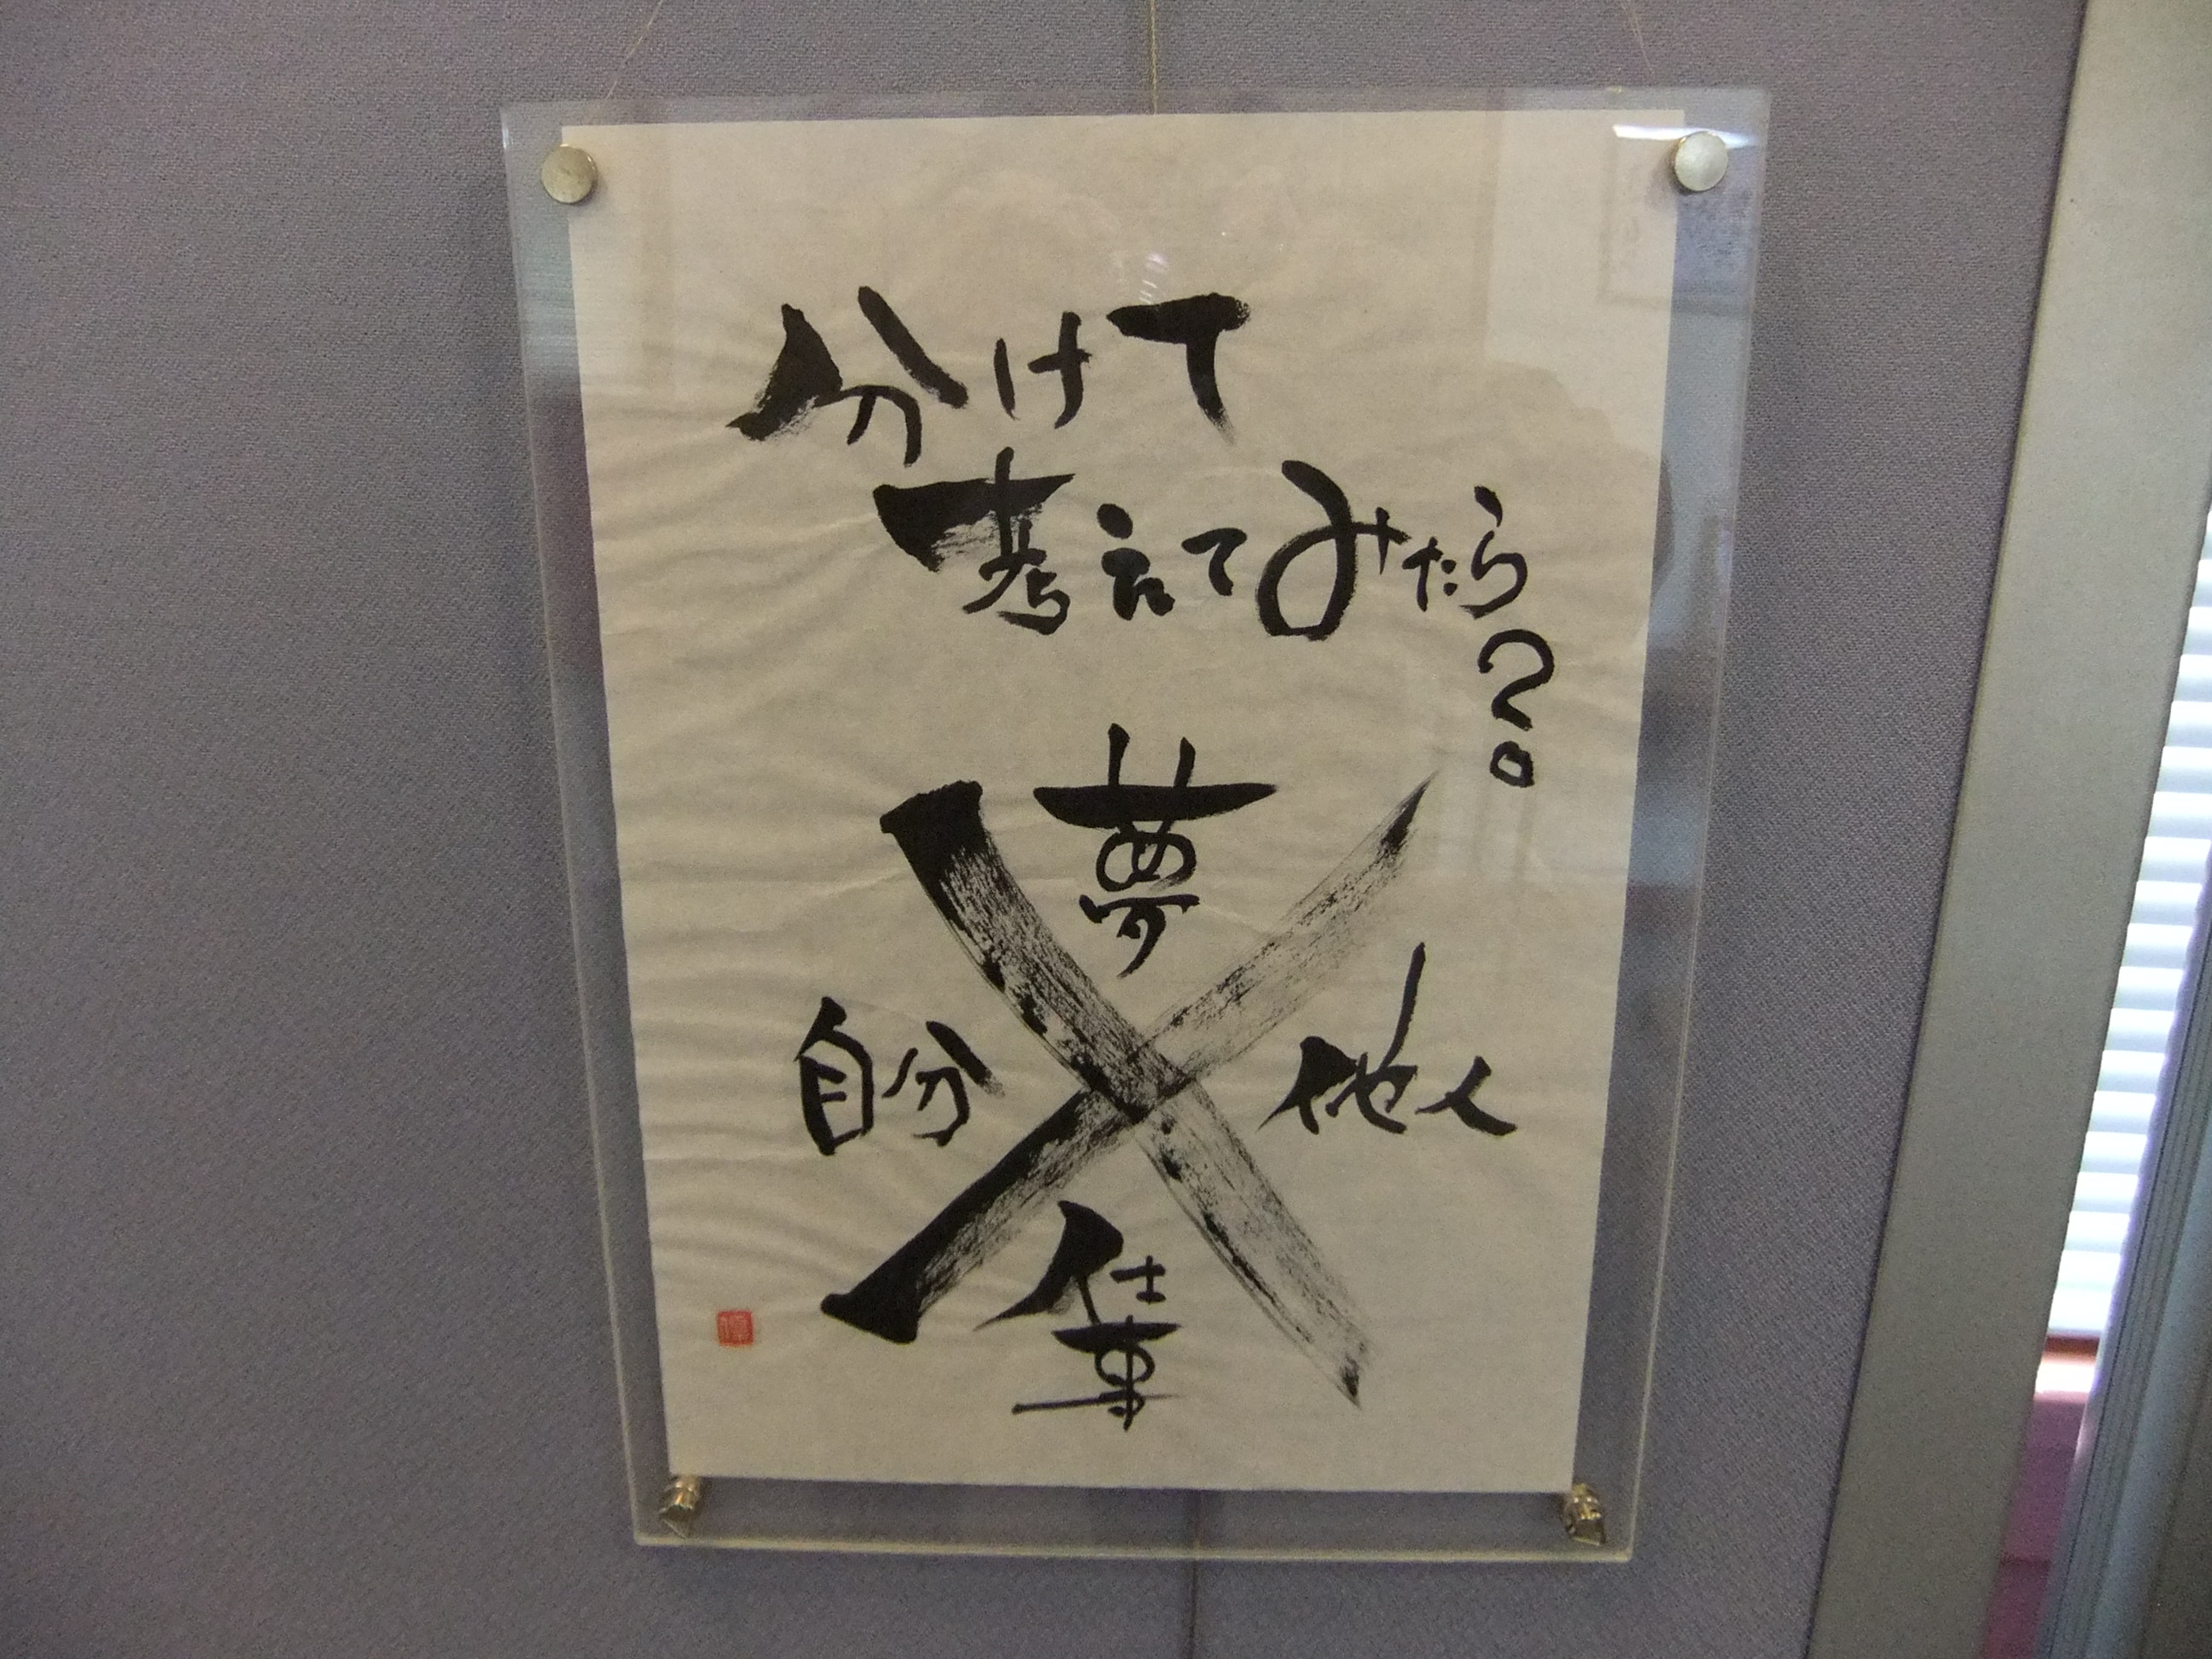 分けて
考えてみたら?
夢
自分 他人
仕事